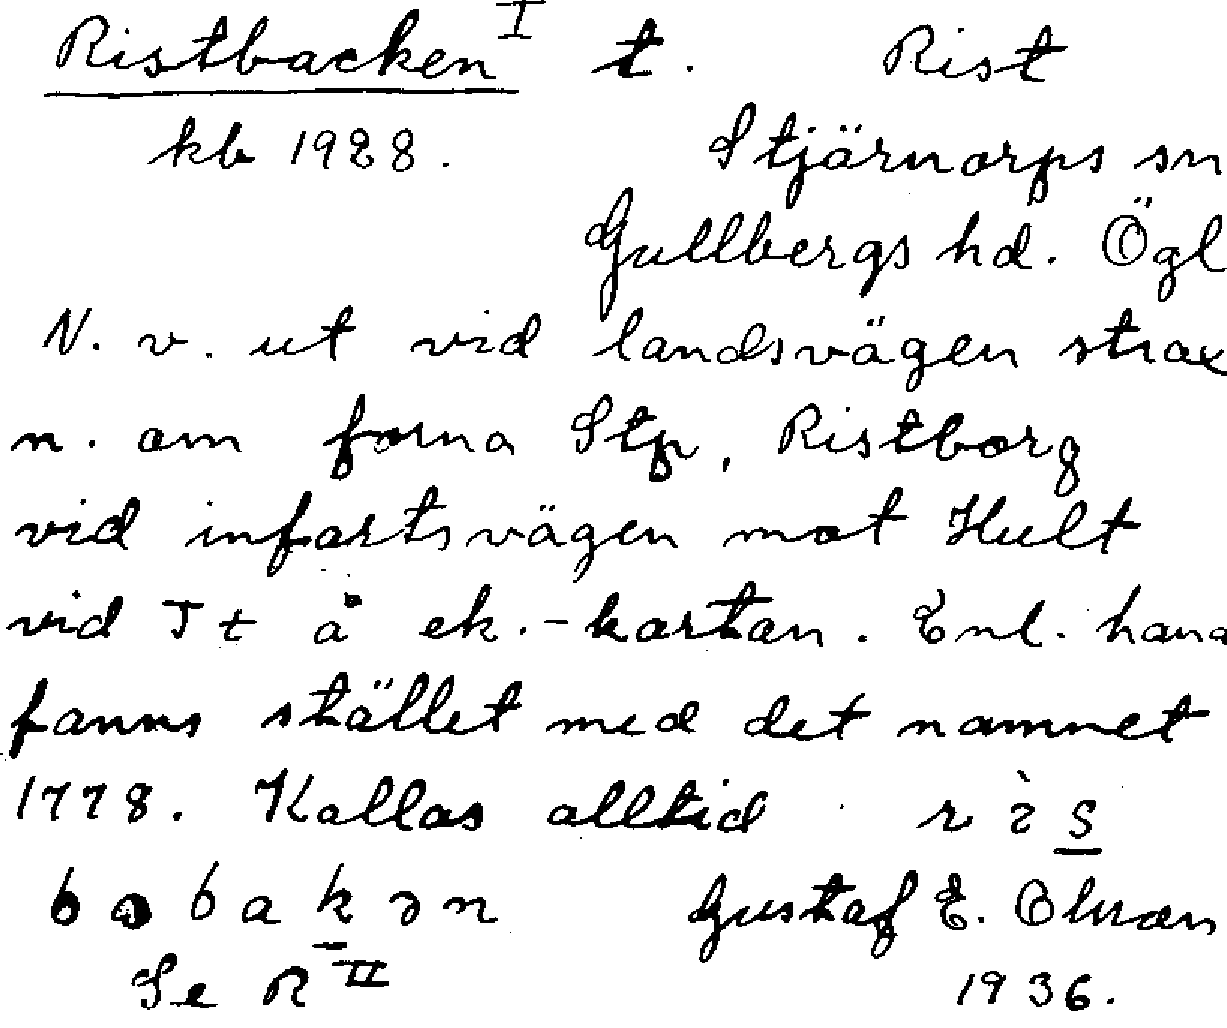 Ristbacken I t. Rist
kb 1928. Stjärnorps sn
Gullbergs hd. Ögl
N. v. ut vid landsvägen strax
n. om forna Stp, Ristborg
vid infartsvägen mot Hult
vid Tt å ek.-kartan. Enl. hand
fanns stället med det namnet
1778. Kallas alltid
bakən Gustaf E.
Se R II 1936.